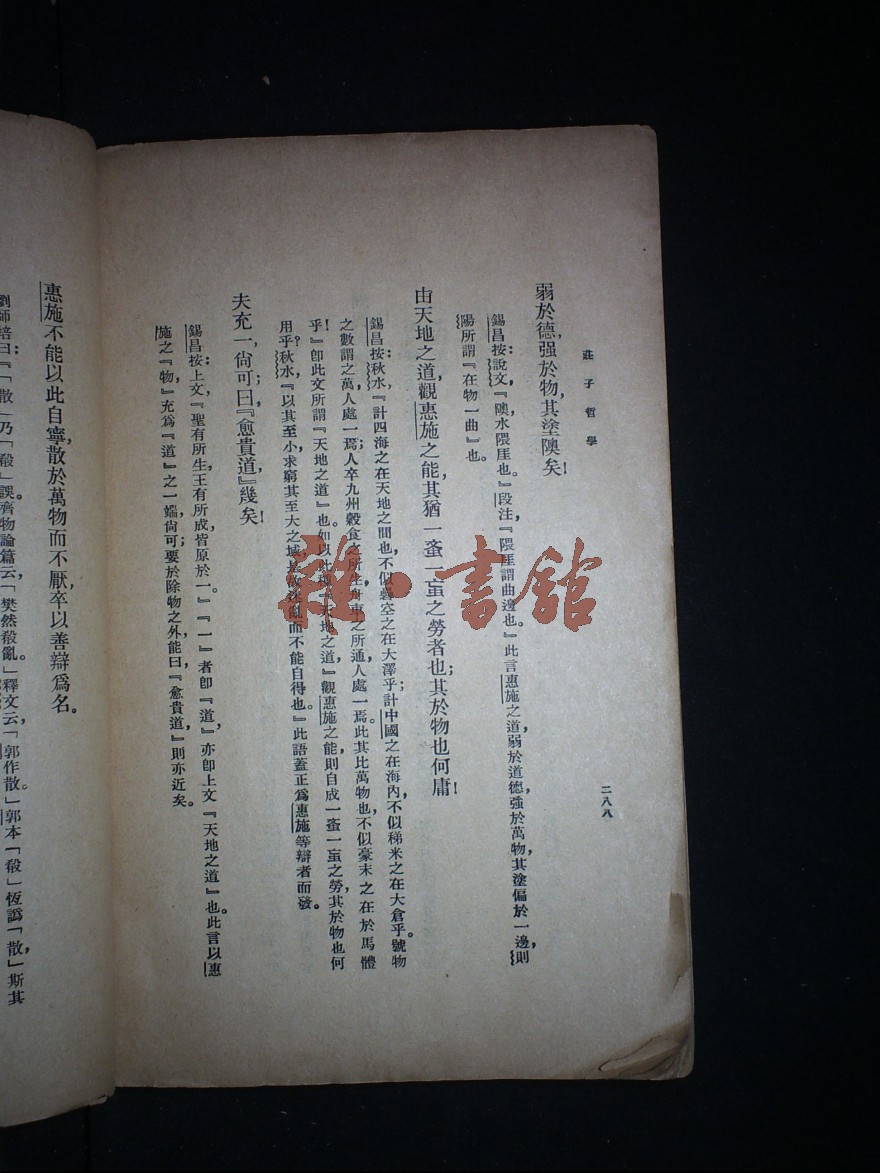 莊子哲學
二八八
弱於德,强於物,其塗隩矣!
錫昌按:說文,『隩,水隈厓也。』段注,『隈厓謂曲邊也。』此言惠施之道,弱於道德,強於萬物,其塗偏於一邊,則
陽所謂『在物一曲』也。
由天地之道,觀惠施之能,其猶一蚉一䖟之勞者也;其於物也何庸!
錫昌按:秋水,『計四海之在天地之間也,不似礨空之在大澤乎;計中國之在海內,不似稊米之在大倉乎。號物
之數謂之萬,人處一焉;人卒九州,穀食之所生,舟車之所通,人處一焉。此其比萬物也,不似豪末之在於馬體
乎!』卽此文所謂『天地之道』也。如以此種『天地之道』觀惠施之能,則自成一蚉一䖟之勞,其於物也何
用乎?秋水,『以其至小,求窮其至大之域,是故迷亂而不能自得也。』此語蓋正爲惠施等辯者而發。
夫充一,尙可;曰『愈貴道,』幾矣!
錫昌按:上文,『聖有所生,王有所成,皆原於一。』『一』者卽『道,』亦卽上文『天地之道』也。此言以惠
施之『物,』充爲『道』之一端尙可;要於除物之外,能曰『愈貴道,』則亦近矣。
惠施不能以此自寧,散於萬物而不厭,卒以善辯爲名。
劉師培曰:『「散」乃「殽」誤。齊物論篇云,「樊然殽亂。」釋文云,「郭作散。」郭本「殽」恆譌「散,」斯其
雜·書館